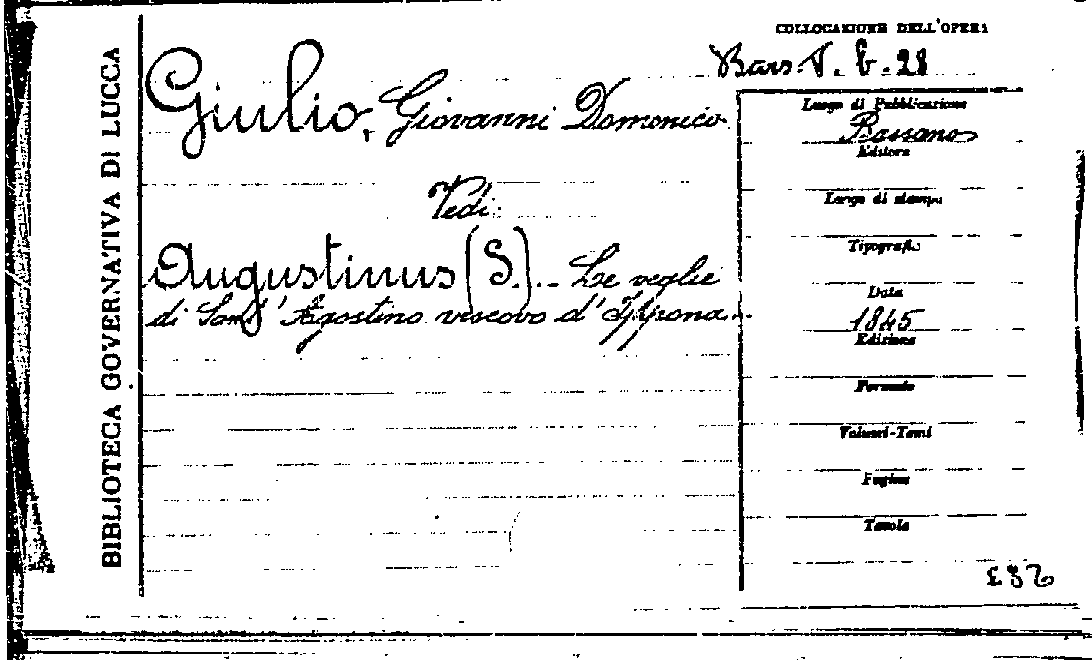 BIBLIOTECA GOVERNATIVA DI LUCCA
COLLOCAZIONE DELL'OPERA
Bars. V. 6. 28
Giulio, Giovanni Domenico
Vedi:
Augustinus (S.). - Le veglie
di Sant'Agostino vescovo d'Ippona.
Luogo di Pubblicazione
Bassano
Editore
Luogo di stampa
Tipografo
Data
1845
Edizione
Formato
Volumi-Tomi
Pagine
Tavole